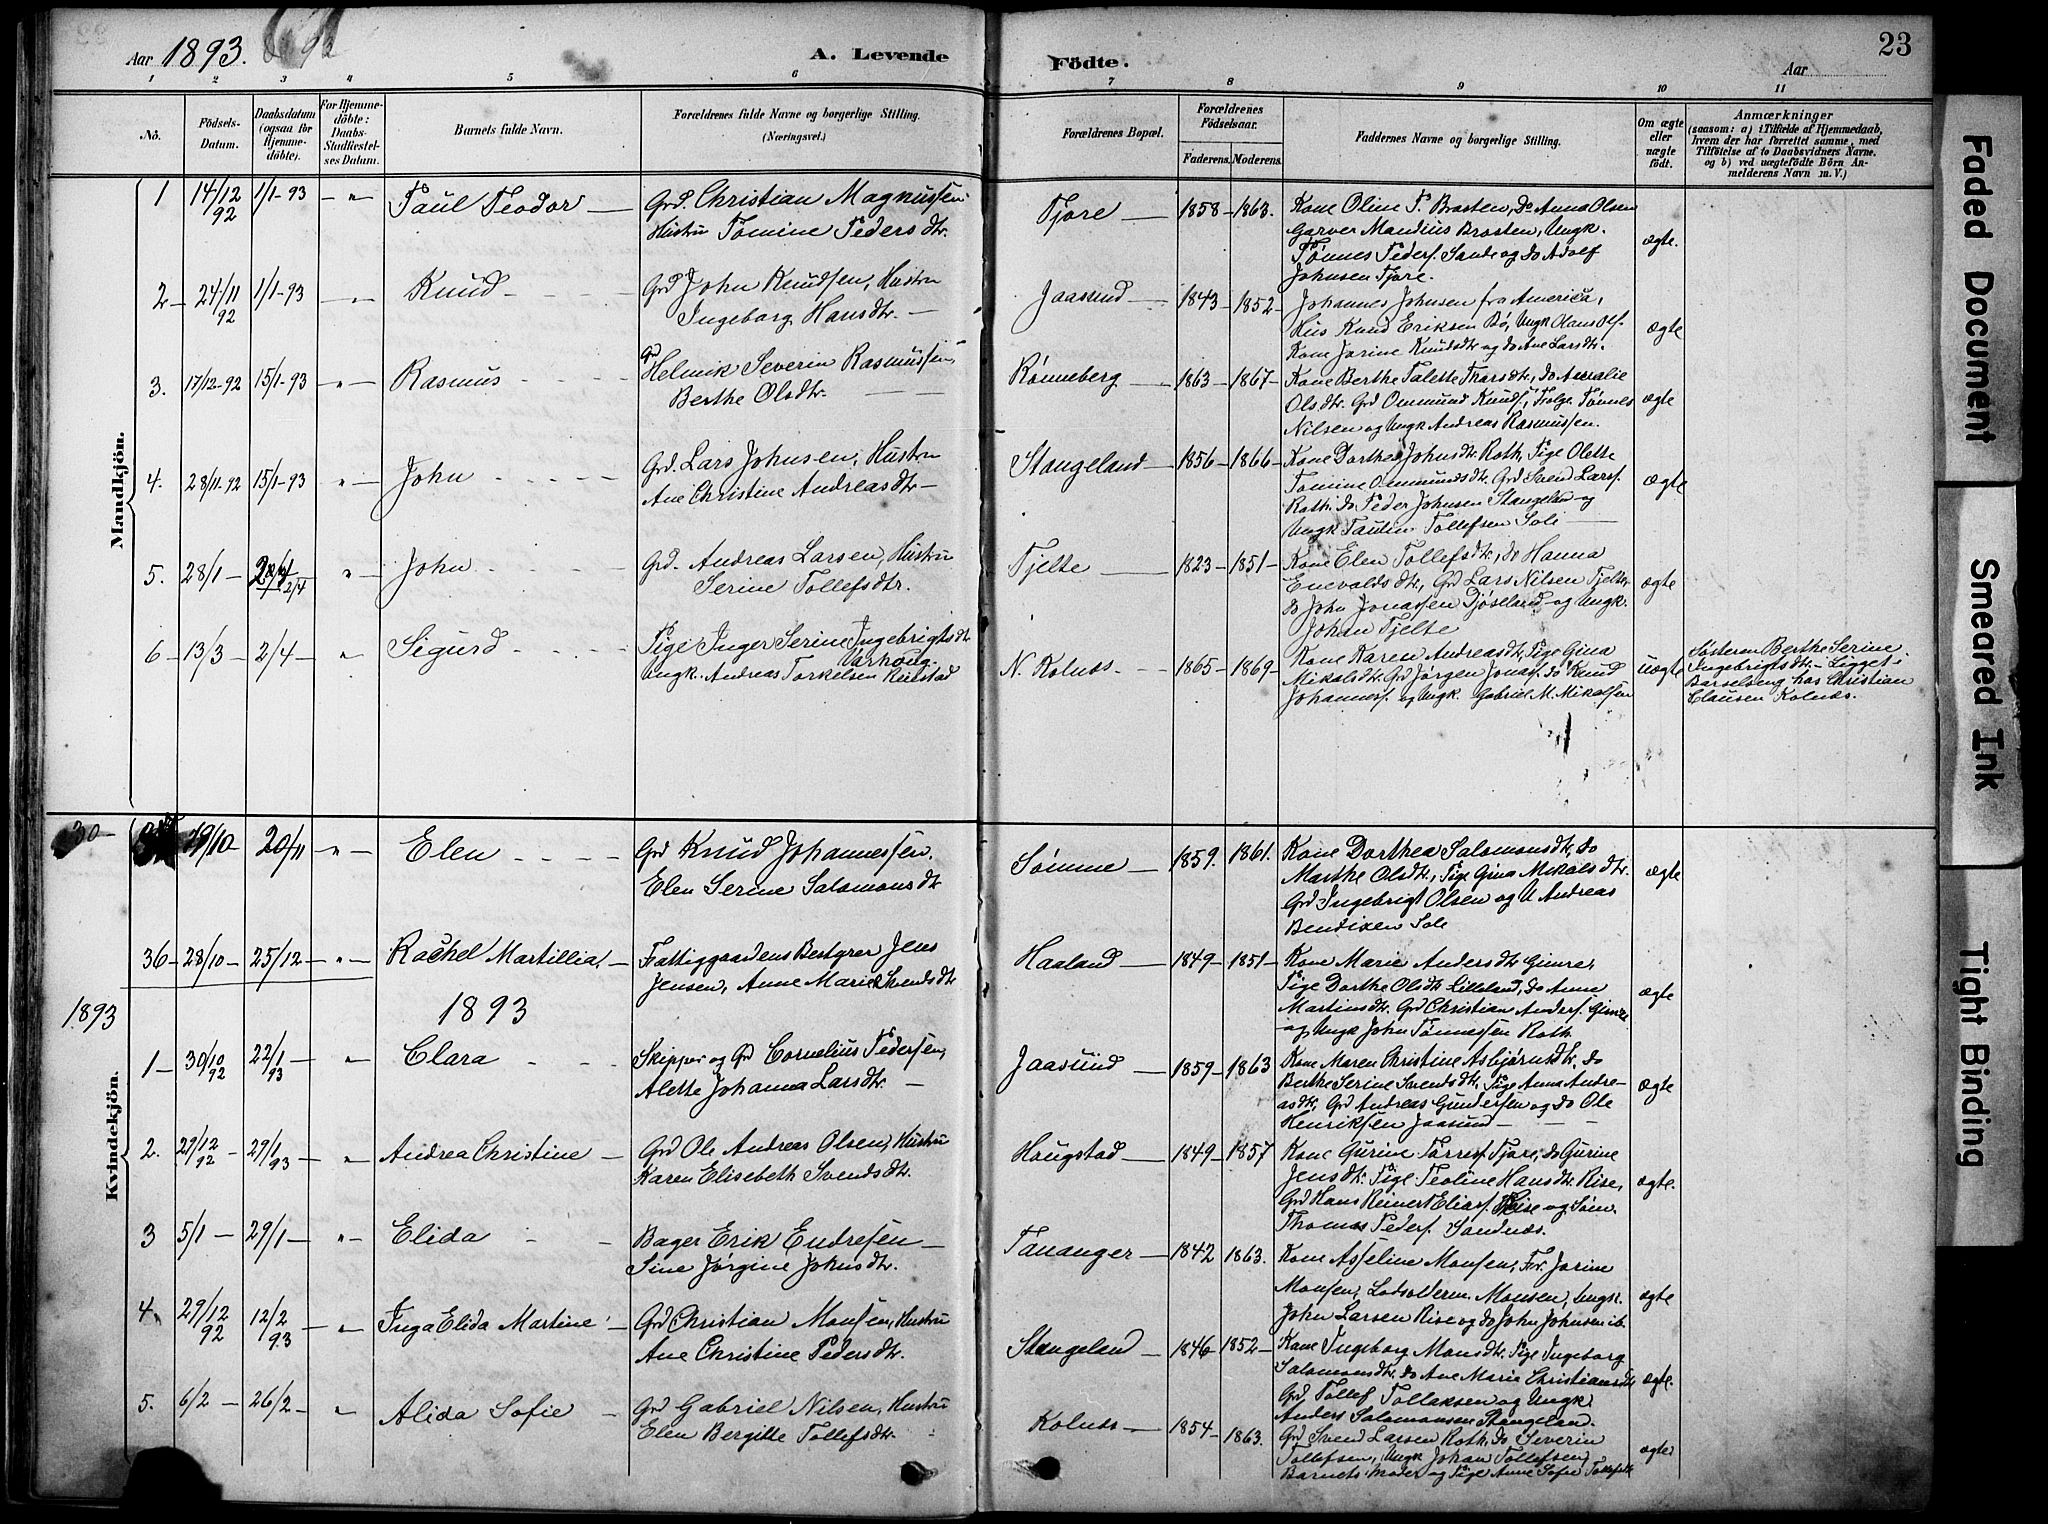 Aar 1893.
A. Levende
Födte.
Aar
23
1 2 3 4 5 6 7 8 9 10 11
No.
Födsels-Datum.
Daabsdatum (ogsaa for Hjemmedöbte).
For Hjemmedöbte: Daabs-Stadfæstelses Datum.
Barnets fulde Navn.
Forældrenes fulde Navne og borgerlige Stilling.
(Næringsvei.)
Forældrenes Bopæl.
Forældrenes Födselsaar.
Faderens. Moderens.
Faddernes Navne og borgerlige Stilling.
Om ægte eller uægte födt.
Anmærkninger
(saasom: a) i Tilfælde af Hjemmedaab, hvem der har forrettet samme, med Tilföielse af to Daabsvidners Navne. og b) ved uægtefödte Börn Anmelderens Navn m. V.)
Mandkjön.
1 14/12 92 1/1-93 - " - Paul Teodor — Grd. Christian Magnussen
Hustru Tomine Pedersdtr.
Tjore — 1858-1863.
Kone Oline P. Brosten, Do Anna Olsen
Garver Mandius Brosten, Ungk.
Tønnes Peders. Sande og do Adolf
Johnsen Tjore.
ægte.
2 - 24/11 92 1/1-93 Knud - - - Grd John Knudsen, Hustru
Ingeborg Hansdtr. —
Jaasund — 1843-1852-
Johannes Johnsen fra America,
Hus Knud Eriksen Bø, Ungk Hans Ols.
Kone Jorine Knudsdtr og do Ane Larsdtr.
ægte
3. 17/12-92 15/1-93 " - Rasmus - - - Grd Helmik Severin Rasmussen,
Berthe Olsdtr. — —
Rønneberg — 1863-1867-
Kone Berthe Talette Thorsdtr, do Amalie
Olsdtr. Grd Ommund Knuds.,
Nilsen og Ungk Andreas Rasmussen.
ægte
4. 28/11-92 15/1-93 " - John - - - Grd. Lars Johnsen, Hustru
Ane Christine Andreasdtr —
Stangeland — 1856-1866-
Kone Dorthea Johnsdtr Roth, Pige Olette
Tomine Ommundsdtr. Grd Sven Lars.
Roth. do Peder Johnsen Stangeland og
Ungk Paulin Tollefsen Sole —
ægte
5. 28/1 - 2/4 " - John - - - Grd. Andreas Larsen, Hustru
Serine Tollefsdtr.
Tjelte — 1823-1851-
Kone Elen Tollefsdtr, do Hanna
Enevaldsdtr, Grd Lars Nilsen Tjelte,
do John Jonassen Djøseland og Ungk.
Johan Tjelte
ægte
6 - 13/3 - 2/4 - " Sigurd - - - Pige Inger Serine Ingebrigtsdtr
Varhoug.
Ungk. Andreas Torkelsen
N. Kolness - 1865-1869-
Kone Karen Andreasdtr, Pige Gina
Mikalsdtr. Grd Jørgen Jonass. do Knud
Johanness. og Ungk. Gabriel M. Mikalsen
uægte
Søsteren Berthe Serine
Ingebrigtsdtr. - Ligget i
Barselseng hos Christian
Clausen Kolnes.
Kvindekjön.
30 19/10 - 20/11 - " - Elen - - - Grd Knud Johannessen.
Elen Serine Salomonsdtr
Sømme — 1859. 1861.
Kone Dorthea Salomonsdtr, do
Marthe Olsdtr, Pige Gina Mikalsdtr.
Grd Ingebrigt Olsen og U Andreas
Bendixen Sole
ægte
36 - 28/10 - 25/12 - " - Rachel Martillia, — Fattiggaardens Bestyrer Jens
Jensen, Anne Marie Svendsdtr
Haaland — 1849-1851-
Kone Marie Andersdtr Gimre,
Pige Dorthe Olsdtr Lilleland, do Anne
Martinsdtr. Grd Christian Anders. Gimre
og Ungk John Tønnessen Roth
ægte
1893
1893
1 - 30/10 92 22/1 93 - " Clara - - Skipper og Grd Cornelius Pedersen,
Alette Johanna Larsdtr —
Jaasund — 1859-1863
Kone Maren Christine Asbjørnsdtr, do
Berthe Serine Svendsdtr, Pige Anna Andre-
asdtr, Grd Andreas Gundersen og do Ole
Henriksen Jaasund - - -
ægte
2. 29/12 92 - 29/1 93 - " Andrea Christine — Grd Ole Andreas Olsen, Hustru
Karen Elisebeth Svendsdtr.
Haugstad — 1849-1857
Kone Gurine Torres. Tjore, do Gurine
Jensdtr. Pige Teoline Hansdtr. Rise,
Grd Hans Reinert Elias. Rise og Søm.
Thomas Peders. Sandnes.
ægte.
3 5/1 - 29/1 - " - Elida - - Bager Erik Endresen —
Sine Jørgine Johnsdtr.
Tananger — 1842 1863.
Kone Asseline Monsen, Frk. Jorine
Monsen, Lodsolderm. Monsen, Ungk.
John Larsen Rise og do John Johnsen ib.
ægte
4. 29/12 92 12/2 93 - " Inga Elida Martine - Grd Christian Monsen, Hustru
Ane Christine Pedersdtr.
Stangeland — 1846-1852-
Kone Ingeborg Monsdtr. Pige Ingeborg
Salomonsdtr. do Ane Marie Christiansdtr
Grd Tollef Tollaksen og Ungk
Anders Salomonsen Stangeland.
ægte.
5. 6/2 - 26/2 - " Alida Sofie — Grd Gabriel Nilsen, Hustru
Elen Bergitte Tollefsdtr.
Kolness - 1854-1863.
Grd Svend Larsen Roth, do Severin
Tollefsen, Ungk Johan Tollefsen,
Barnets Moder og Pige Anne Sofie Tollefsdtr
ægte
Faded Document
Smeared Ink
Tight Binding